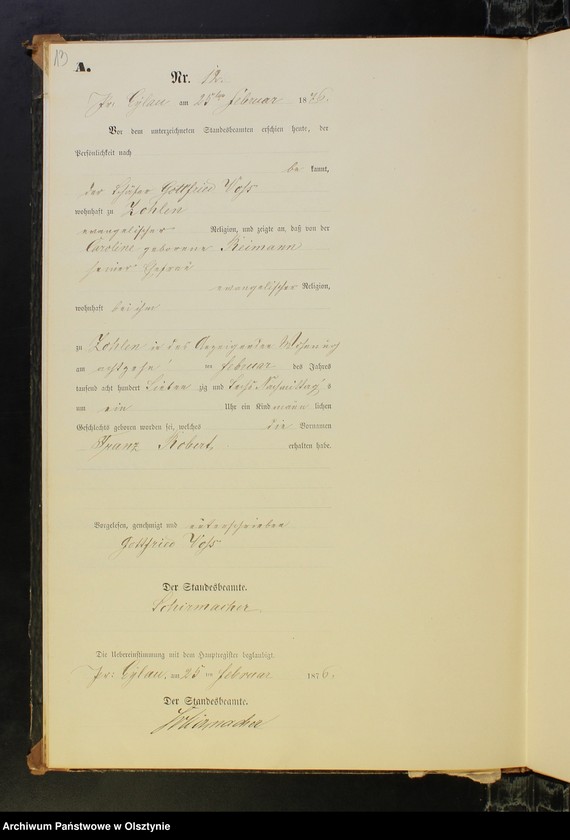 13
A.
Nr. 12.
Pr: Eylau am 25ten Februar 1876.
Vor dem unterzeichneten Standesbeamten erschien heute, der
Persönlichkeit nach
be kannt,
der Schäfer Gottfried Voß
wohnhaft zu Zohlen
evangelischer Religion, und zeigte an, daß von der
Caroline geborene Reimann
seiner Ehefrau
evangelischer Religion,
wohnhaft bei ihm
zu Zohlen in des Anzeigenden Wohnung
am achtzehn Februar des Jahres
tausend acht hundert Sieben zig und Sechs Nachmittags
um ein Uhr ein Kind männ lichen
Geschlechts geboren worden sei, welches die Vornamen
Franz Robert erhalten habe.
Vorgelesen, genehmigt und unterschrieben
Gottfried Voß
Der Standesbeamte.
Schirmacher
Die Uebereinstimmung mit dem Hauptregister beglaubigt.
Pr: Eylau, am 25 Februar 1876.
Der Standesbeamte.
Schirmacher
Archiwum Państwowe w Olsztynie